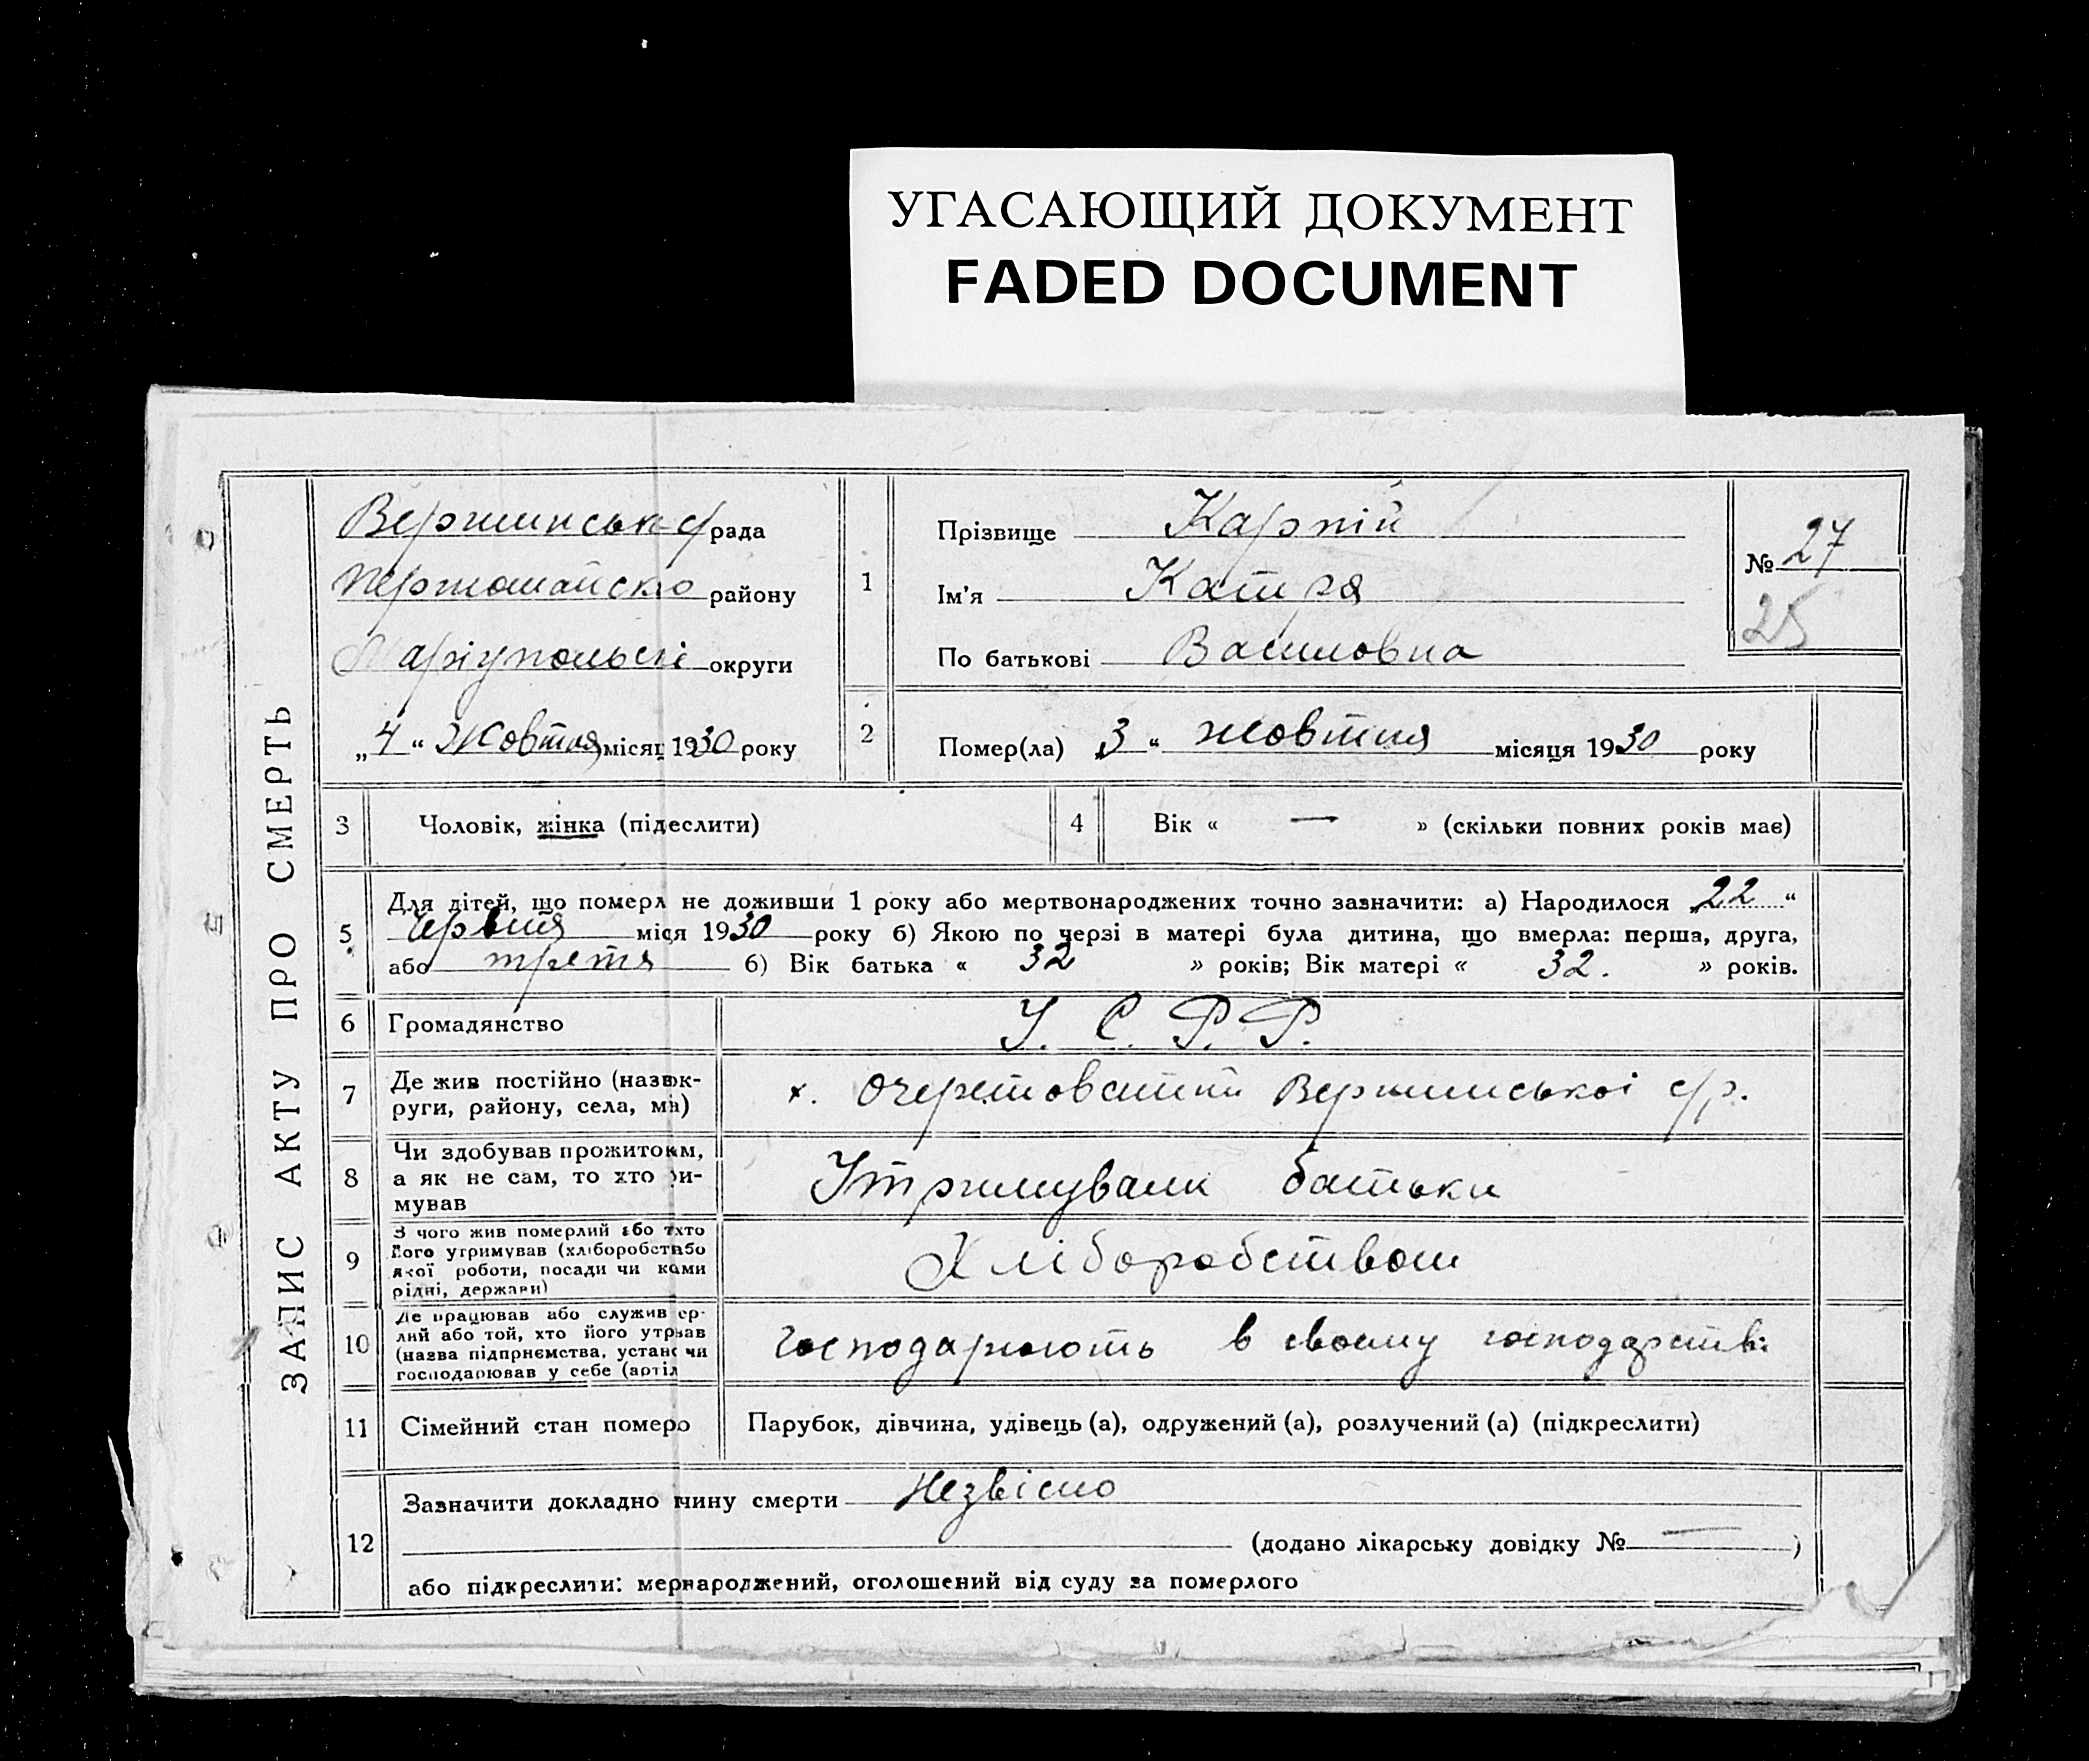 УГАСАЮЩИЙ ДОКУМЕНТ
FADED DOCUMENT
ЗАПИС АКТУ ПРО СМЕРТЬ
Вершинськ с/рада
Першомайсько району
Маріупольскі округи
„4“ Жовтня місяц 1930 року
1
Прізвище Карпій
Ім'я Катря
По батькові Василовна
№ 27
25
2
Помер(ла) „3“ жовтня місяця 1930 року
3 Чоловік, жінка (підеслити)
4 Вік « — » (скільки повних років має)
5
Для дітей, що померл не доживши 1 року або мертвонароджених точно зазначити: а) Народилося „22“
Червня міся 1930 року б) Якою по черзі в матері була дитина, що вмерла: перша, друга,
або третя б) Вік батька « 32 » років; Вік матері « 32. » років.
6 Громадянство У. С. Р. Р.
7
Де жив постійно (назвок-
руги, району, села, ма)
х. Очеретоватий Вершинськоі с/р.
8
Чи здобував прожитокам,
а як не сам, то хто ри-
мував
Утримували батьки
9
З чого жив померлий або тхто
його утримував (хліборобствбо
якої роботи, посади чи коми
рідні, держави)
Хліборобством
10
Де працював або служив ер-
лий або той, хто його утрвав
(назва підпрнємства, устанс чи
господарював у себе (артіл
Господарюють в своєму господарстві
11 Сімейний стан померо Парубок, дівчина, удівець (а), одружений (а), розлучений (а) (підкреслити)
12
Зазначити докладно чину смерти Незвісно
(додано лікарську довідку № — )
або підкреслити: мернароджений, оголошений від суду за померлого